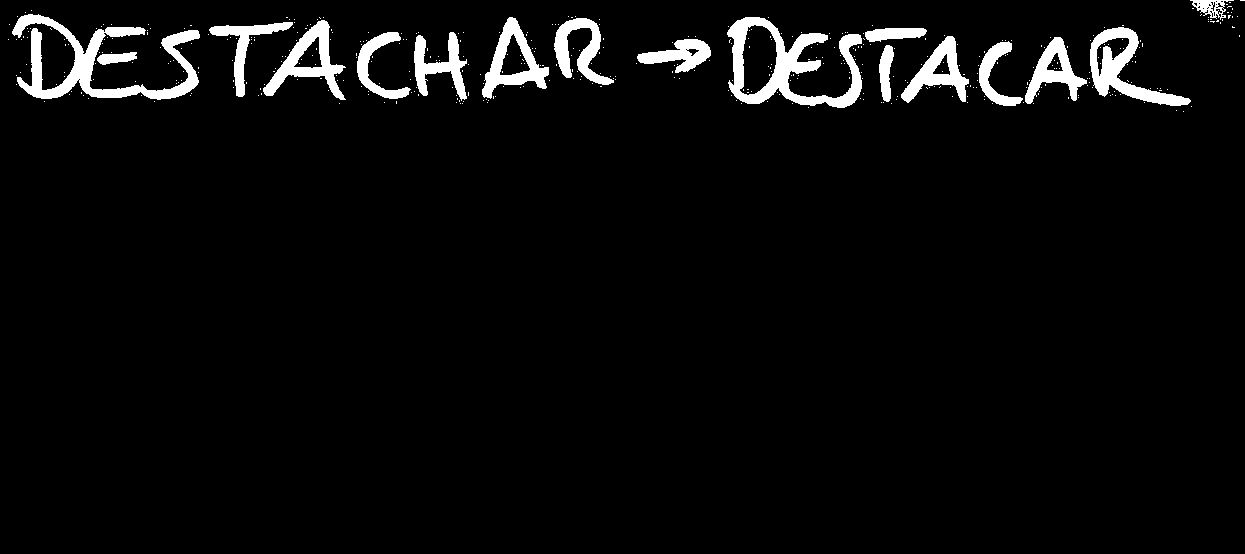 DESTACHAR → DESTACAR